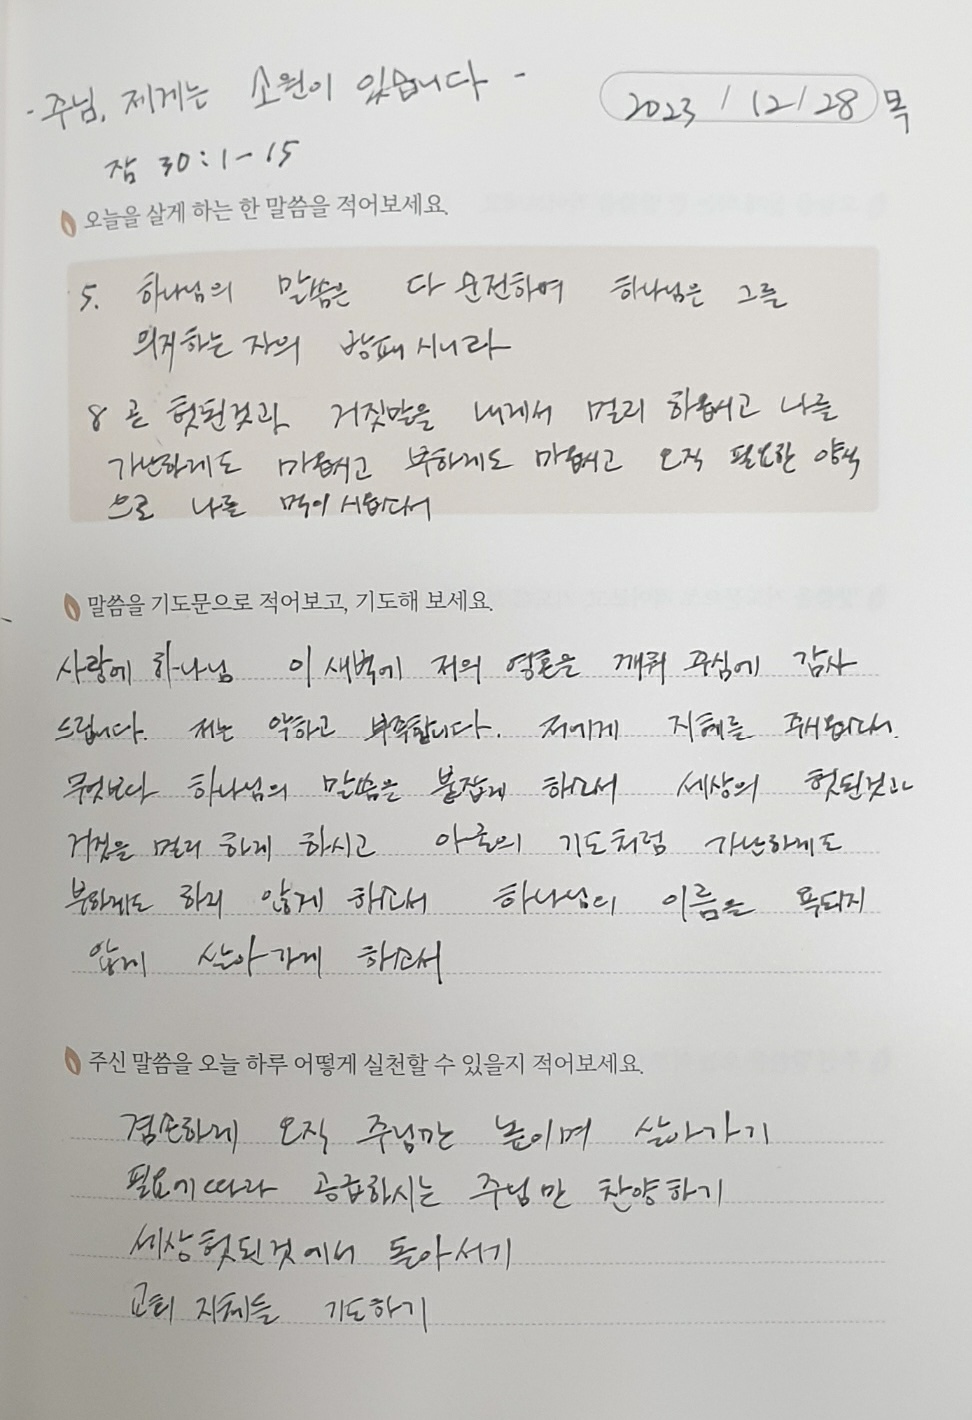 - 주님, 제게는 소원이 있습니다 -
2023 / 12 / 28 목
잠 30:1-15
오늘을 살게 하는 한 말씀을 적어보세요.
5. 하나님의 말씀은 다 순전하며 하나님은 그를
의지하는 자의 방패시니라
8 곧 헛된것과 거짓말을 내게서 멀리 하옵시고 나를
가난하게도 마옵시고 부하게도 마옵시고 오직 필요한 양식
으로 나를 먹이시옵소서
말씀을 기도문으로 적어보고, 기도해 보세요.
사랑에 하나님 이 새벽에 저의 영혼을 깨워 주심에 감사
드립니다. 저는 악하고 부족합니다. 저에게 지혜를 주시옵소서.
무엇보다 하나님의 말씀을 붙잡게 하소서 세상의 헛된것과
거짓을 멀리 하게 하시고 아굴의 기도처럼 가난하게도
부하게도 하지 않게 하소서 하나님의 이름을 욕되지
않게 살아가게 하소서
주신 말씀을 오늘 하루 어떻게 실천할 수 있을지 적어보세요.
겸손하게 오직 주님만 높이며 살아가기
필요에따라 공급하시는 주님만 찬양하기
세상 헛된것에서 돌아서기
교회 지체들 기도하기